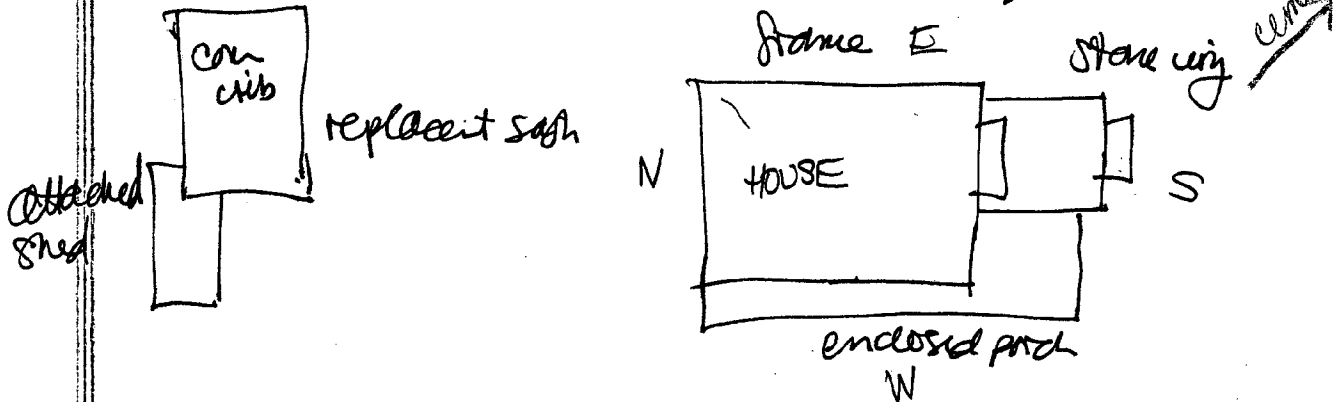 corn
crib
replacemt sash
attached
shed
frame E
stone wing
N
HOUSE
S
enclosed porch
W